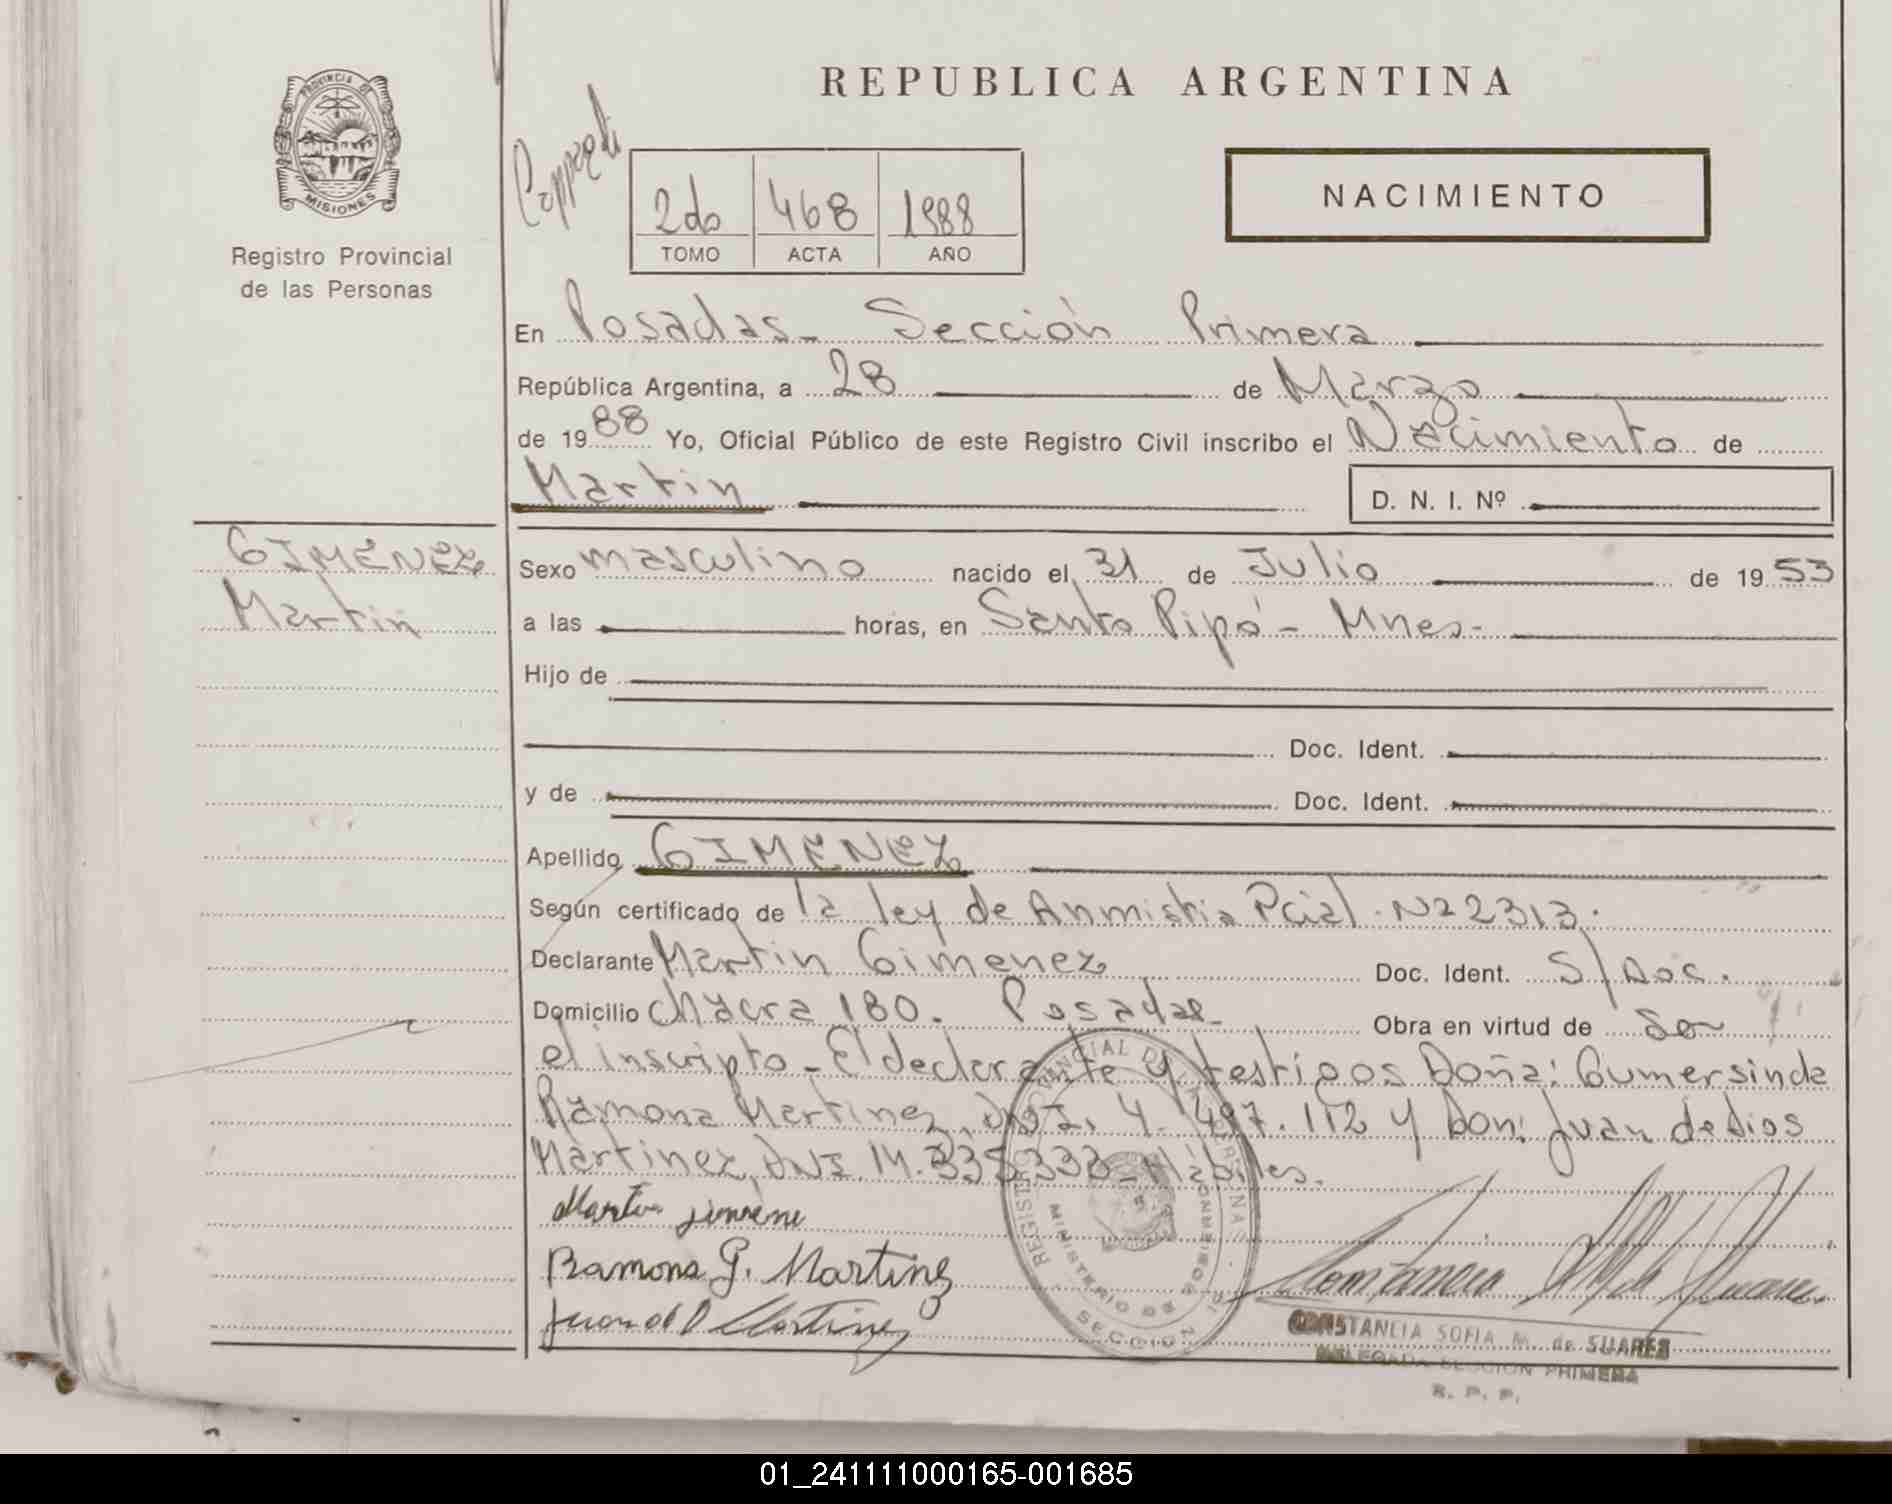 REPUBLICA ARGENTINA
PROVINCIA DE
MISIONES
Registro Provincial
de las Personas
2do 468 1988
TOMO ACTA AÑO
NACIMIENTO
En Posadas - Sección Primera
República Argentina, a 28 de Marzo
de 1988 Yo, Oficial Público de este Registro Civil inscribo el Nacimiento de
Martin D. N. I. Nº
GIMENEZ
Martin
Sexo masculino nacido el 31 de Julio de 1953
a las horas, en Santo Pipó - Mnes.
Hijo de
Doc. Ident.
y de Doc. Ident.
Apellido GIMENEZ
Según certificado de la ley de Anmistia Pcial. Nº 2313.
Declarante Martin Gimenez Doc. Ident. S/Doc.
Domicilio Chacra 180. Posadas Obra en virtud de Ser
el inscripto - El declarante y testigos Doña: Gumersinda
Ramona Martinez, DNI. 4.497.112 y Don: Juan de Dios
Martinez, DNI. M. 335333 - Hábiles.
Ramona G. Martinez
Juan de D Martinez
CONSTANCIA SOFIA M. de SUAREZ
DELEGADA SECCION PRIMERA
R. P. P.
01_241111000165-001685